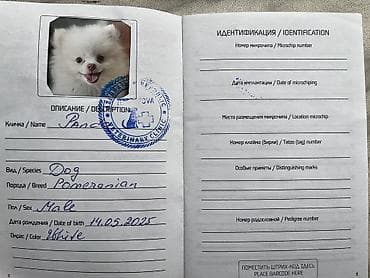 ОПИСАНИЕ / DESCRIPTION
Кличка / Name
Вид / Species Dog
Порода / Breed Pomeranian
Пол / Sex Male
Дата рождения / Date of birth 14.05.2025
Окрас / Color White
VETERINARY CLINIC
ИДЕНТИФИКАЦИЯ / IDENTIFICATION
Номер микрочипа / Microchip number
Дата имплантации / Date of microchiping
Место размещения микрочипа / Location microchip
Номер клейма (бирки) / Tatoo (tag) number
Особые приметы / Distinguishing marks
Номер родословной / Pedigree number
ПОМЕСТИТЬ ШТРИХ-КОД ЗДЕСЬ
PLACE BARCODE HERE